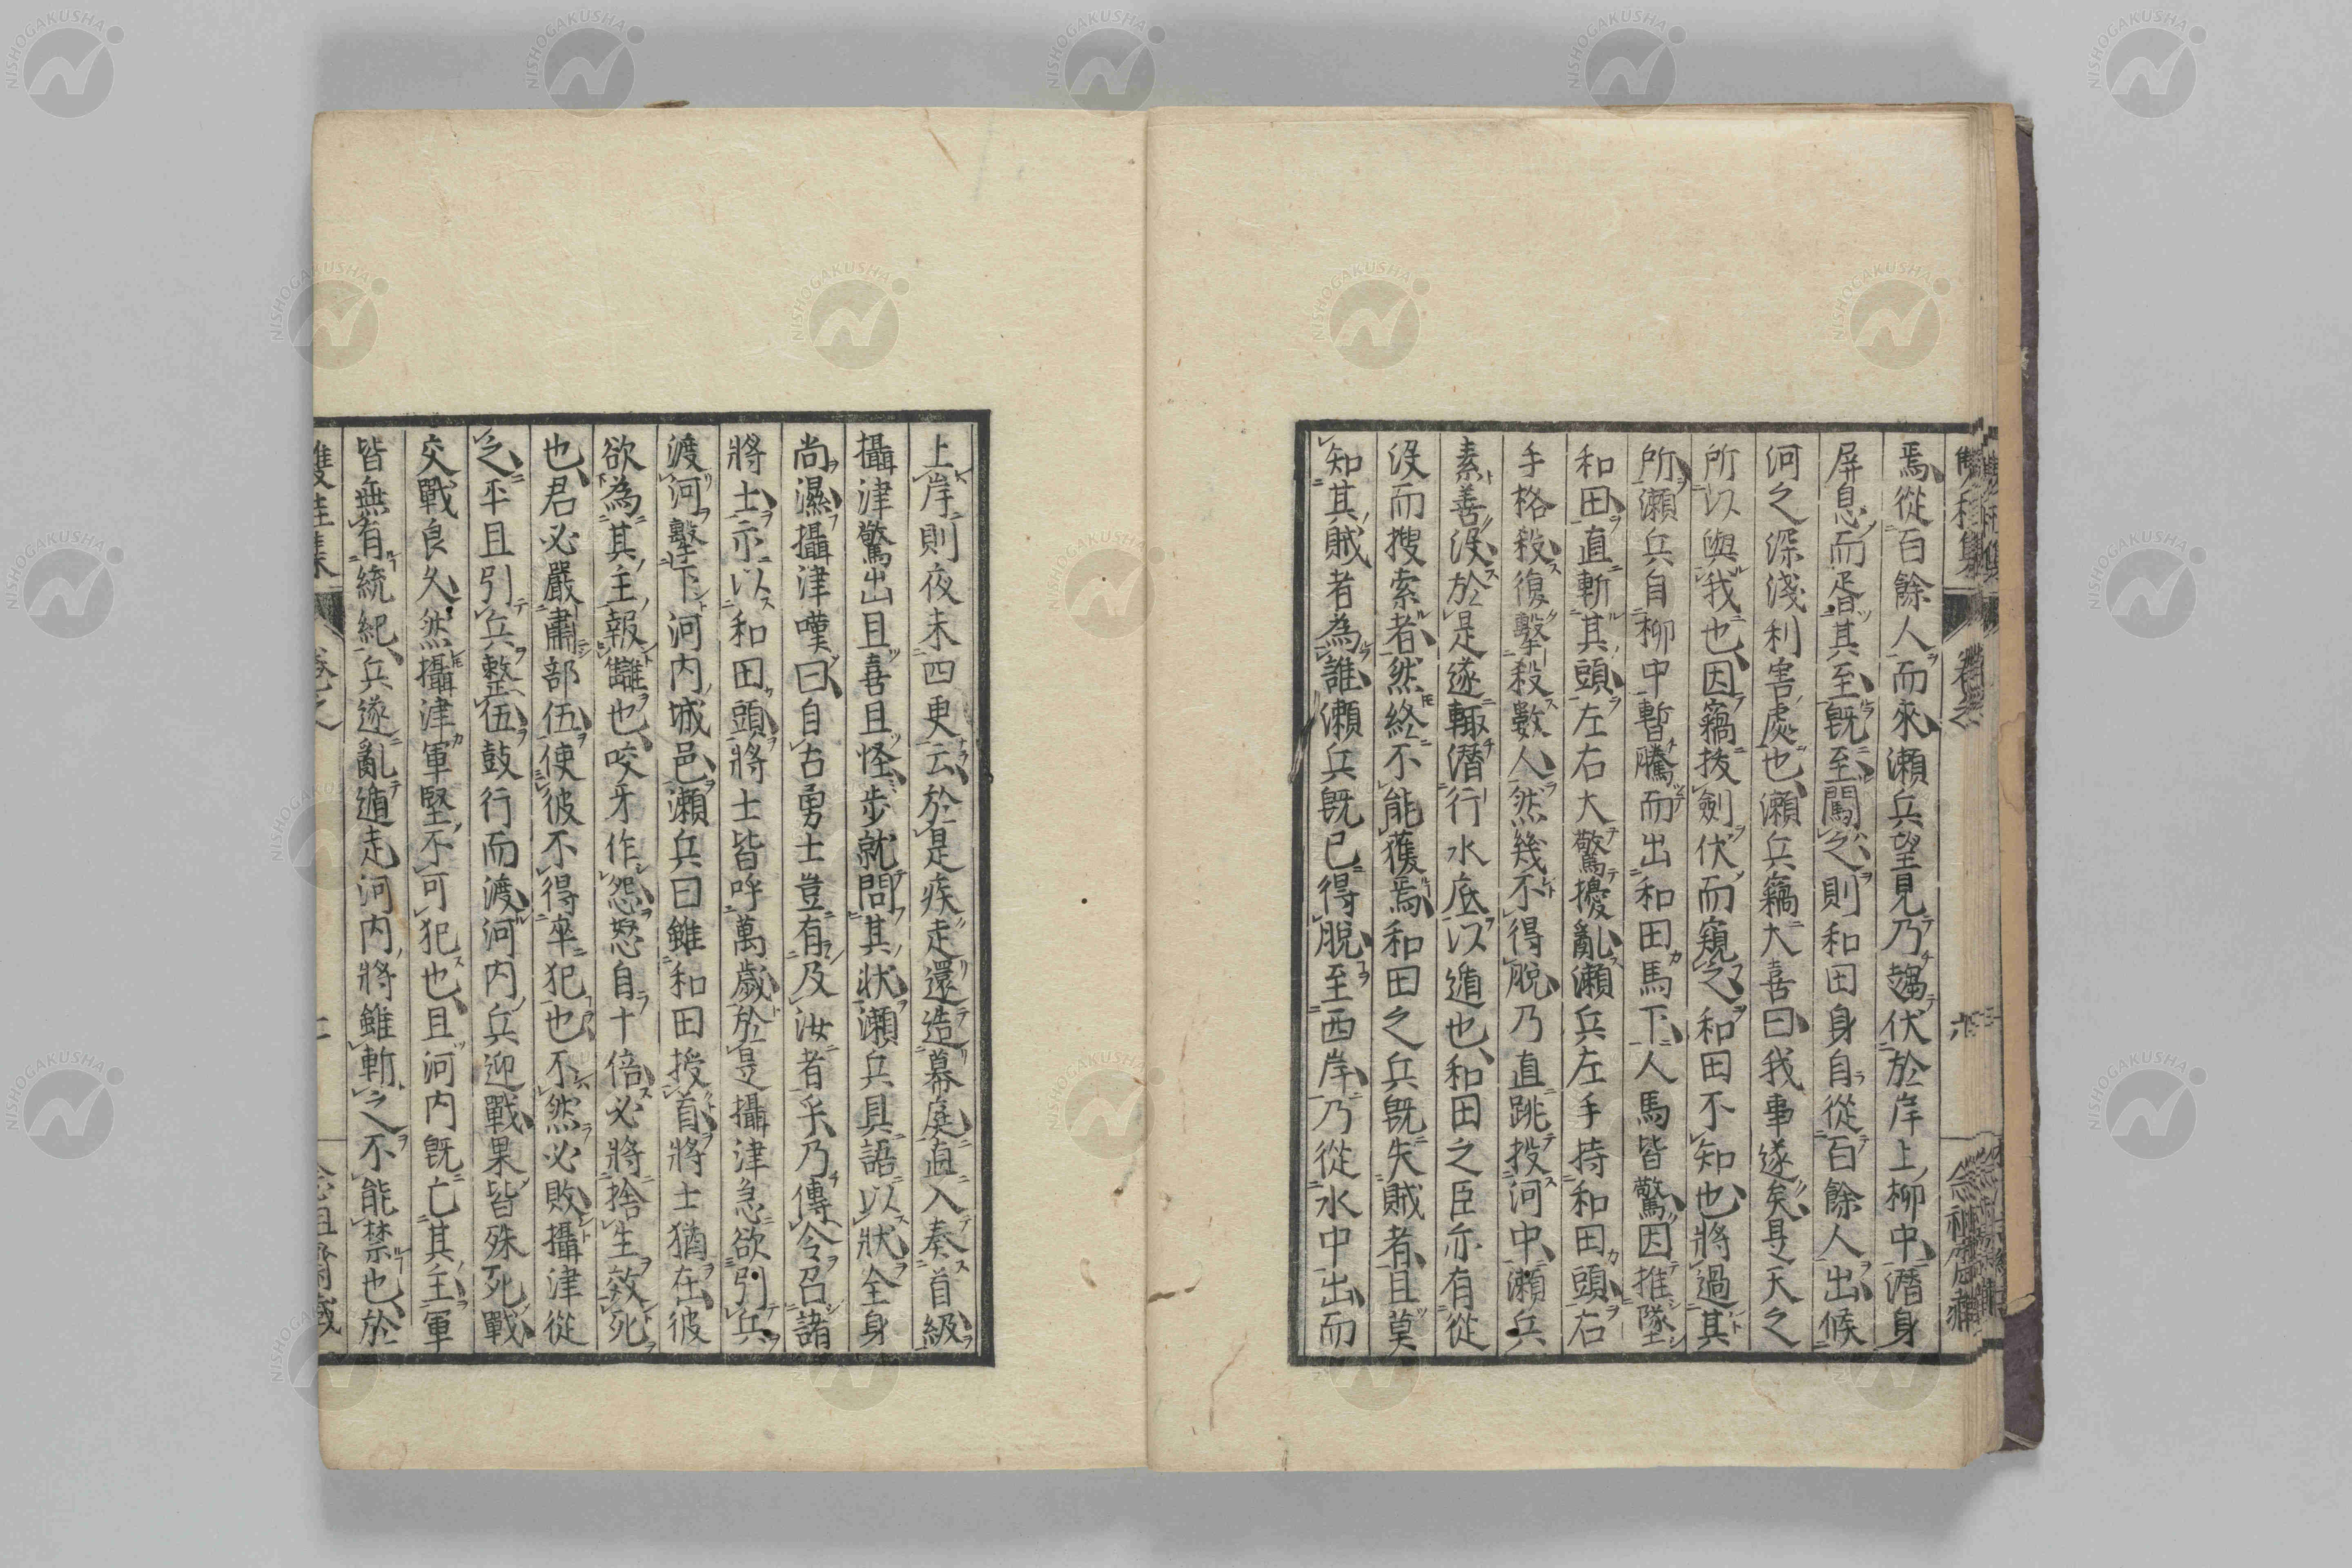 焉從百餘人而來瀬兵望見乃趨伏於岸上柳中潛身
屏息而居其至既至闖之則和田身自從百餘人出候
河之深淺利害處也瀬兵竊大喜曰我事遂矣是天之
所以與我也因竊拔劍伏而窺之和田不知也將過其
所瀬兵自柳中暫騰而出和田馬下人馬皆驚因推墜
和田直斬其頭左右大驚擾亂瀬兵左手持和田頭右
手格殺復擊殺數人然幾不得脫乃直跳投河中瀬兵
素善沒於是遂輙潛行水底以遁也和田之臣亦有從
沒而搜索者然終不能獲焉和田之兵既失賊者且莫
知其賊者為誰瀬兵既已得脫至西岸乃從水中出而
上岸則夜未四更云於是疾走還造幕庭直入奏首級
攝津驚出且喜且怪步就問其狀瀬兵具語以狀全身
尚濕攝津嘆曰自古勇士豈有及汝者乎乃傳令召諸
將士示以和田頭將士皆呼萬歲於是攝津急欲引兵
渡河擊下河內城邑瀬兵曰雖和田授首將士猶在彼
欲為其主報讎也咬牙作怨怒自十倍必將捨生效死
也君必嚴肅部伍使彼不得卒犯也不然必敗攝津從
之平旦引兵整伍鼓行而渡河內兵迎戰果皆殊死戰
交戰良久然攝津軍堅不可犯也且河內既亡其主軍
皆無有統紀兵遂亂遁走河內將雖斬之不能禁也於